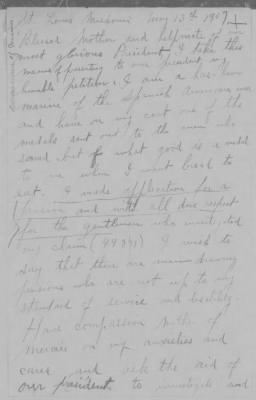 St Louis Missouri Nov 13th 1907
Blessed Mother and helpmate of our
most glorious President, I take this
means of presenting to our president, my
humble petition. I am a has been
marine of the Spanish American war
and have on my coat one of the
medals sent out to the men who
saved but of what good is a medal
to me when I want bread to
eat. I made application for a
pension and with all due respect
for the gentlemen who
my claim (49391) I wish to
say that there are men drawing
pensions who are not up to my
standard of service and disability.
Have compassion Mother of
Mercies on my anxieties and
cares and ask the aid of
our president to investigate and